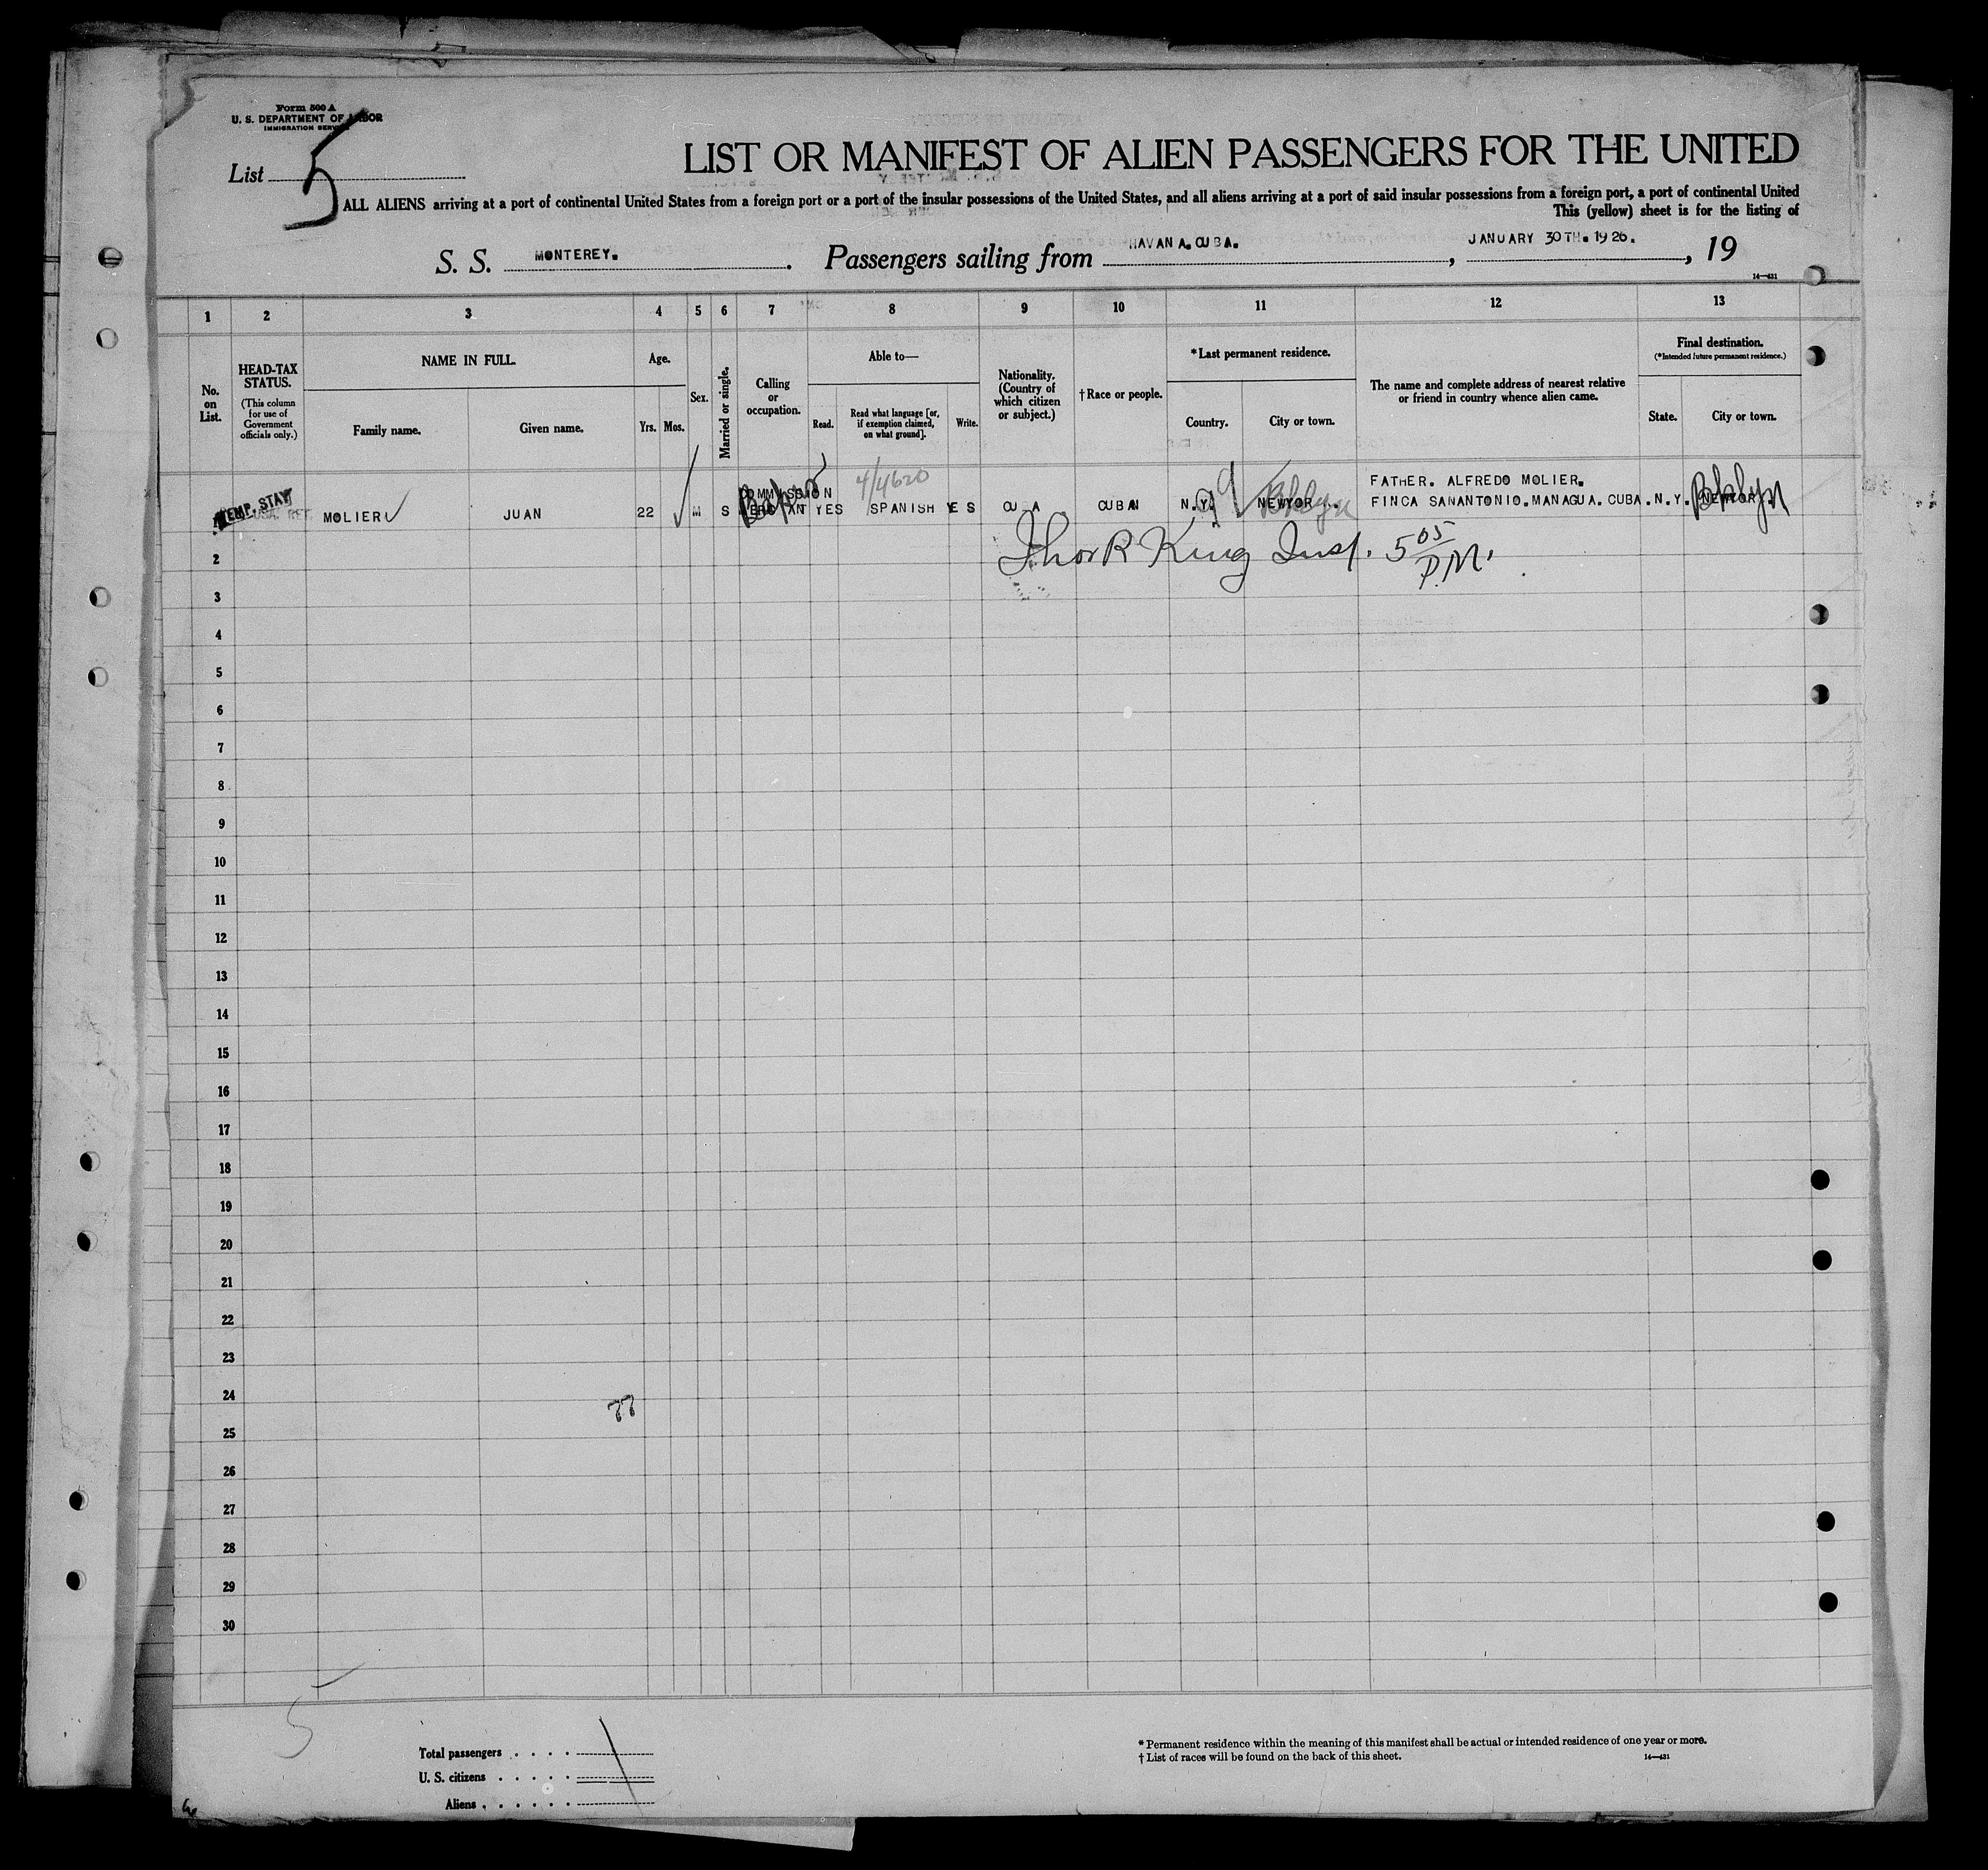 Form 500 A
U. S. DEPARTMENT OF LABOR
IMMIGRATION SERVICE
List 5
LIST OR MANIFEST OF ALIEN PASSENGERS FOR THE UNITED
ALL ALIENS arriving at a port of continental United States from a foreign port or a port of the insular possessions of the United States, and all aliens arriving at a port of said insular possessions from a foreign port, a port of continental United
This (yellow) sheet is for the listing of
S. S. MONTEREY. Passengers sailing from HAVANA.CUBA. , JANUARY 30TH.1926. , 19
14—431
1 2 3 4 5 6 7 8 9 10 11 12 13
No. on List.
HEAD-TAX STATUS.
(This column for use of Government officials only.)
NAME IN FULL.
Family name.
Given name.
Age.
Yrs. Mos.
Sex.
Married or single.
Calling or occupation.
Able to—
Read.
Read what language [or, if exemption claimed, on what ground].
Write.
Nationality. (Country of which citizen or subject.)
†Race or people.
*Last permanent residence.
Country.
City or town.
The name and complete address of nearest relative or friend in country whence alien came.
Final destination.
(*Intended future permanent residence.)
State.
City or town.
4/4620
FATHER. ALFREDO MOLIER.
TEMP. STAY MOLIER JUAN 22 M S COMMISSION YES SPANISH YES CU A CUBAN N.Y. NEWYOR . Bklyn FINCA SANANTONIO.MANAGUA.CUBA. N.Y. NEWYOR . Bklyn
Thor R King Insp. 5 05 P.M.
2
3
4
5
6
7
8
9
10
11
12
13
14
15
16
17
18
19
20
21
22
23
24
77
25
26
27
28
29
30
5
Total passengers . . . .
U. S. citizens . . . . .
Aliens . . . . . .
* Permanent residence within the meaning of this manifest shall be actual or intended residence of one year or more.
† List of races will be found on the back of this sheet.
14—431